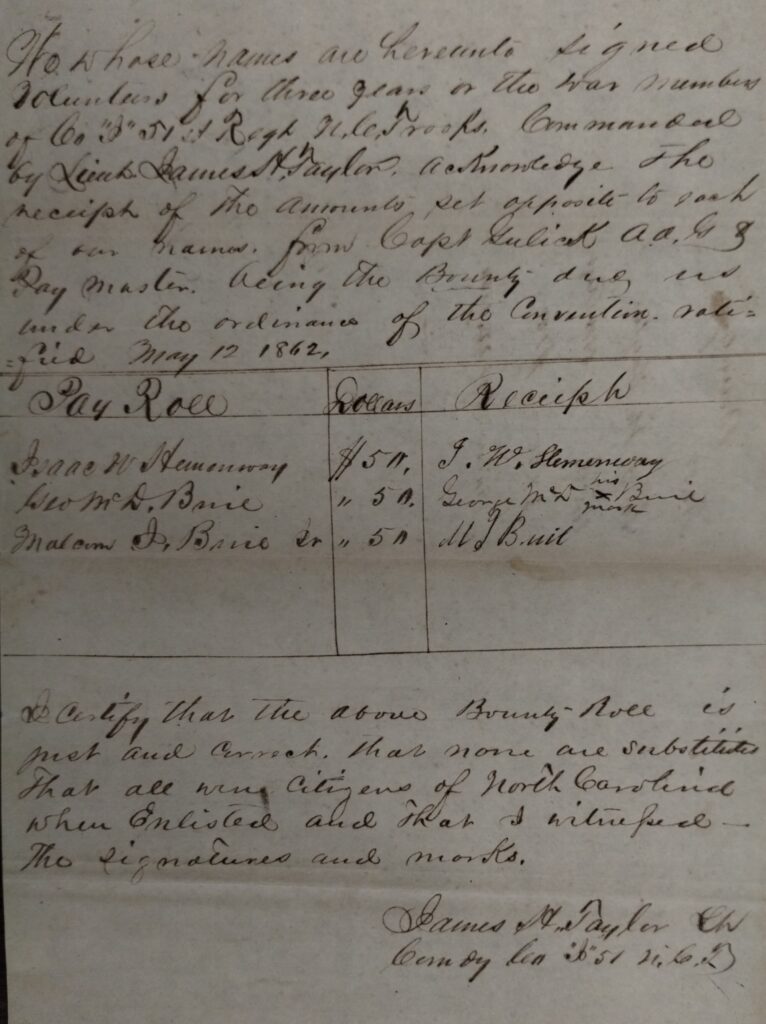 We whose names are hereunto signed
Volunteers for three years or the war members
of Co "I" 51st Regt N.C. Troops. Commanded
by Lieut James H. Taylor. acknowledge the
receipt of the amounts set opposite to each
of our names. from Capt Gulick A.Q.M &
Pay master. being the Bounty due us
under the ordinance of the Convention. rati-
=fied May 12 1862,
Pay Roll Dollars Receipt
Isaac W Hemenway $50, I. W. Hemenway
Geo McD. Buie " 50. George McD his x mark Buie
Malcom J. Buie Sr " 50 M J Buie
I Certify that the above Bounty Roll is
just and Correct. that none are substitutes
That all were Citizens of North Carolina
when Enlisted and that I witnessed
the signatures and marks.
James H. Taylor
Comdg Co "I" 51 N.C.T